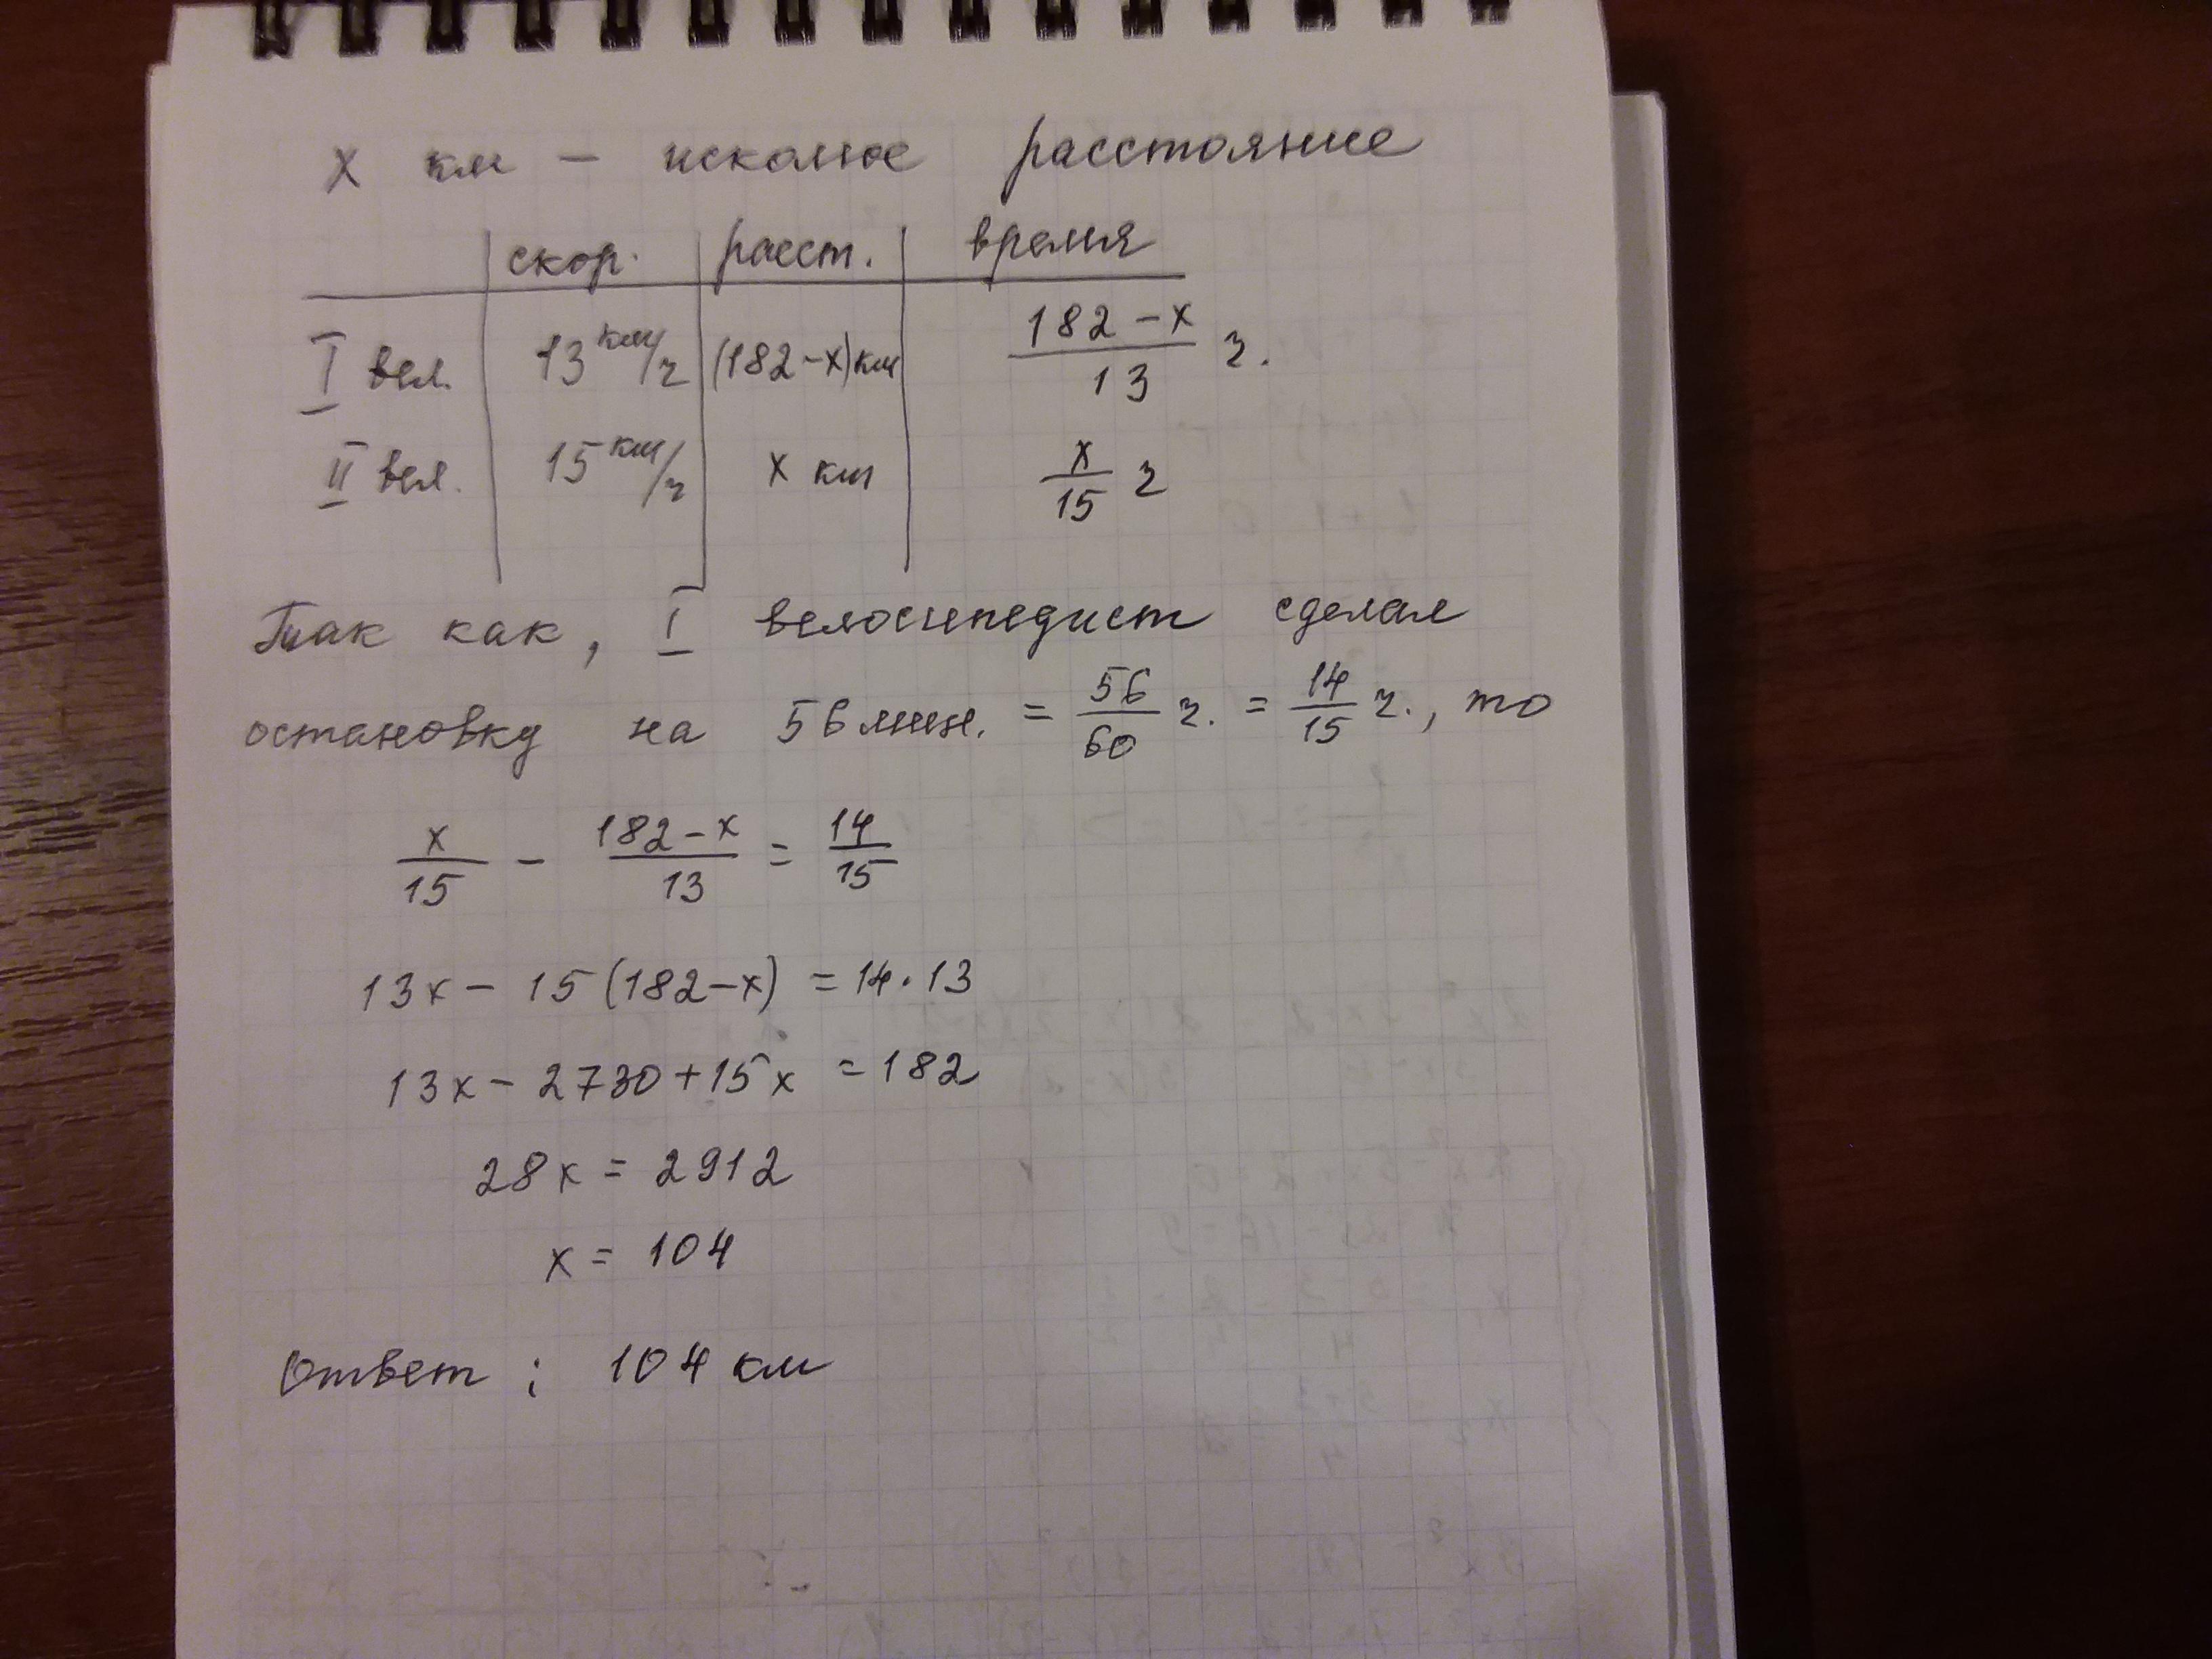 x км – искомое расстояние
скор. расст. время
I вел. 13 км/ч (182-x) км \frac{182-x}{13} ч.
II вел. 15 км/ч x км \frac{x}{15} ч
Так как, I велосипедист сделал
остановку на 56 мин. = \frac{56}{60} ч. = \frac{14}{15} ч., то
\frac{x}{15} - \frac{182-x}{13} = \frac{14}{15}
13x - 15(182-x) = 14·13
13x - 2730 + 15x = 182
28x = 2912
x = 104
Ответ: 104 км